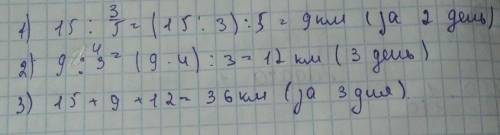 1) 15 : 3/5 = (15 : 3) : 5 = 9 км (за 2 день)
2) 9 : 4/3 = (9 · 4) : 3 = 12 км (3 день)
3) 15 + 9 + 12 = 36 км (за 3 дня)